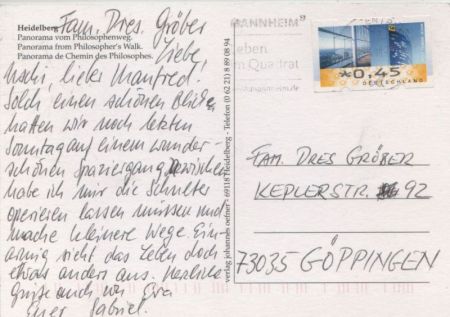 Heidelberg
Panorama vom Philosophenweg.
Panorama from Philosopher's Walk.
Panorama de Chemin des Philosophes.
Fam. Dres. Gröber
Liebe
Uschi, lieber Manfred!
Solch einen schönen
hatten wir noch letzten
Sonntag auf einem wunder-
schönen Spaziergang. Inzwischen
habe ich mir die Schulter
operieren lassen müssen und
mache kleinere Wege. Ein-
armig sieht das Leben doch
etwas anders aus. Herzliche
Grüße auch von Eva
Euer Gabriel.
verlag johannes oefner · 69118 Heidelberg · Telefon (0 62 21) 8 89 08 94
MANNHEIM
Leben
im Quadrat
*0,45
DEUTSCHLAND
FAM. DRES GRÖBER
KEPLERSTR. 92
73035 GÖPPINGEN